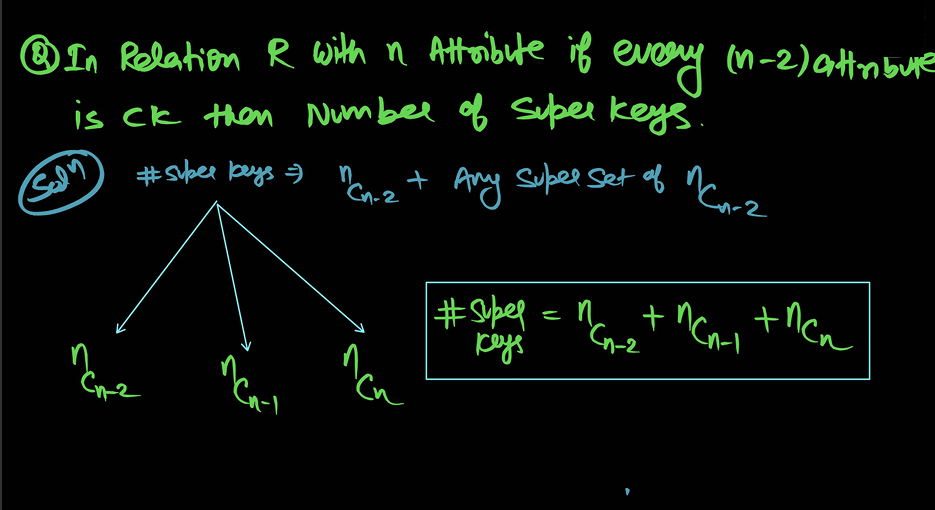 Q In Relation R with n Attribute if every (n-2) attribute
is CK then Number of Super keys.
Solⁿ #super keys ⇒ ⁿCₙ₋₂ + Any Super Set of ⁿCₙ₋₂
ⁿCₙ₋₂ ⁿCₙ₋₁ ⁿCₙ
#super keys = ⁿCₙ₋₂ + ⁿCₙ₋₁ + ⁿCₙ